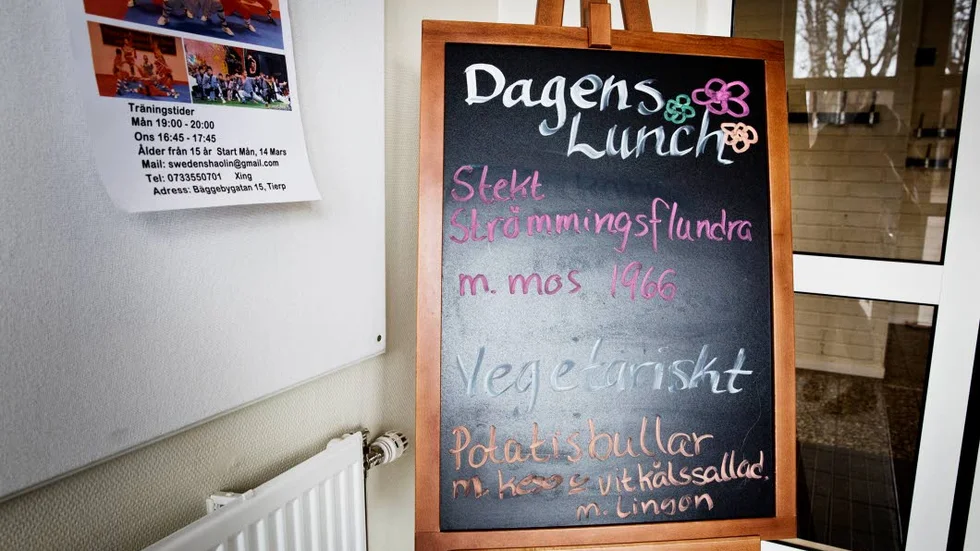 Träningstider
Mån 19:00 - 20:00
Ons 16:45 - 17:45
Ålder från 15 år Start Mån, 14 Mars
Mail: swedenshaolin@gmail.com
Tel: 0733550701 Xing
Adress: Bäggebygatan 15, Tierp
Dagens
Lunch
Stekt
Strömmingsflundra
m. mos 1966
Vegetariskt
Potatisbullar
m. vitkålssallad.
m. Lingon